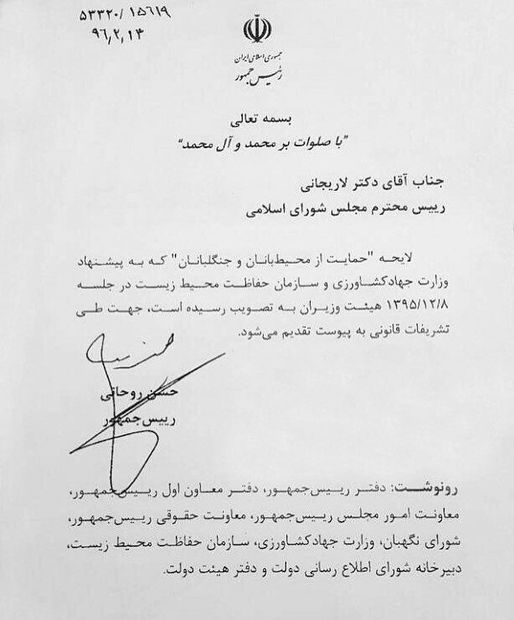 ۵۳۳۲۰/۱۵۶۱۹
۹۶٫۲٫۱۳
جمهوری اسلامی ایران
رئیس جمهور
بسمه تعالی
"با صلوات بر محمد و آل محمد"
جناب آقای دکتر لاریجانی
رییس محترم مجلس شورای اسلامی
لایحه "حمایت از محیط‌بانان و جنگلبانان" که به پیشنهاد
وزارت جهادکشاورزی و سازمان حفاظت محیط زیست در جلسه
۱۳۹۵/۱۲/۸ هیئت وزیران به تصویب رسیده است، جهت طی
تشریفات قانونی به پیوست تقدیم می‌شود.
حسن روحانی
رییس‌جمهور
رونوشت: دفتر رییس‌جمهور، دفتر معاون اول رییس‌جمهور،
معاونت امور مجلس رییس‌جمهور، معاونت حقوقی رییس‌جمهور،
شورای نگهبان، وزارت جهادکشاورزی، سازمان حفاظت محیط زیست،
دبیرخانه شورای اطلاع رسانی دولت و دفتر هیئت دولت.